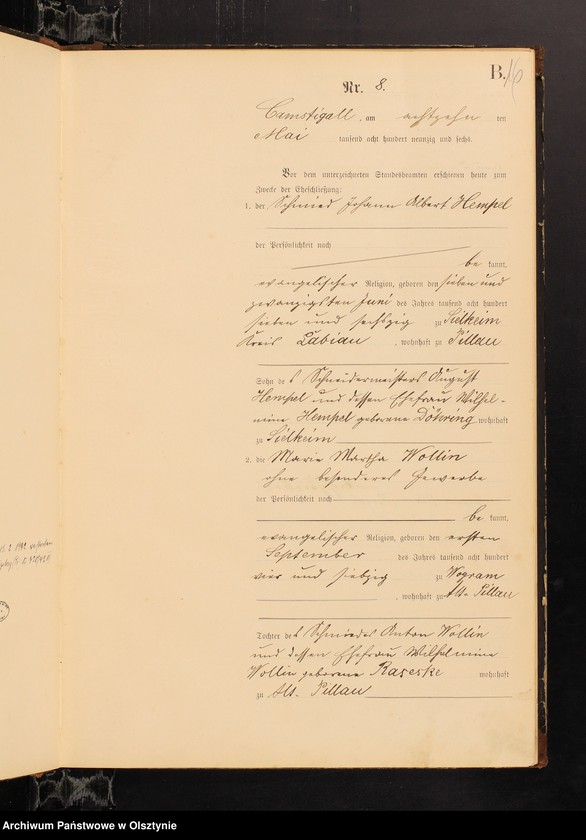 B.
16
Nr. 8.
Camstigall, am achtzehn ten
Mai tausend acht hundert neunzig und sechs.
Vor dem unterzeichneten Standesbeamten erschienen heute zum
Zwecke der Eheschließung:
1. der Schmied Johann Albert Hempel
der Persönlichkeit nach
be kannt,
evangelischer Religion, geboren den sieben und
zwanzigsten Juni des Jahres tausend acht hundert
sieben und sechszig zu Sielkeim
Kreis Labiau, wohnhaft zu Pillau
Sohn des Schneidermeisters August
Hempel und dessen Ehefrau Wilhel-
mine Hempel geborene Döhring wohnhaft
zu Sielkeim
2. die Marie Martha Wollin
ohne besonderes Gewerbe
der Persönlichkeit nach
be kannt,
evangelischer Religion, geboren den ersten
September des Jahres tausend acht hundert
vier und siebzig zu Wogram
, wohnhaft zu Alt-Pillau
Tochter des Schmiedes Anton Wollin
und dessen Ehefrau Wilhelmine
Wollin geborene Raseske wohnhaft
zu Alt-Pillau
Archiwum Państwowe w Olsztynie